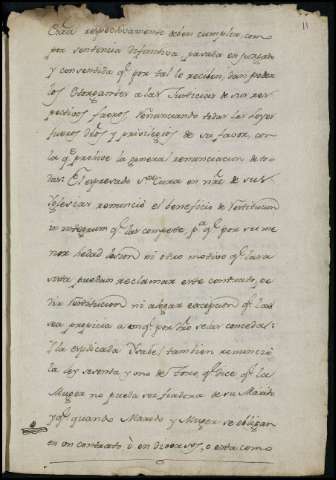 11
Cada respectivamente deben cumplir, como
por sentencia definitiva, pasada en juzgado
y consentida qe. por tal lo reciben, dan poder
los Otorgantes a las Justicias de sus res-
pectivos fueros, renunciando todas las leyes
fueros dros. y privilegios de su favor, con
la qe. prohive la general renunciacion de to-
das: El expresado Sor. Cura en nre. de sus
Iglesias renunció el beneficio de restitucion
in integrum qe. las compete pa. qe. por su me
nor hedad lesion ni otro motivo qe. las a
sista puedan reclamar este contrato, pe
dir restitucion ni alegar excepcion qe. las
sea propicia aunqe. por dro. se las conceda:
Y la explicada Ysabel tambien renunció
la ley sesenta y una de Toro qe. dice qe. la
Muger no pueda ser fiadora de su Marido
y qe. quando Marido y Muger se obligan
en un contrato ò en diversos, o esta como